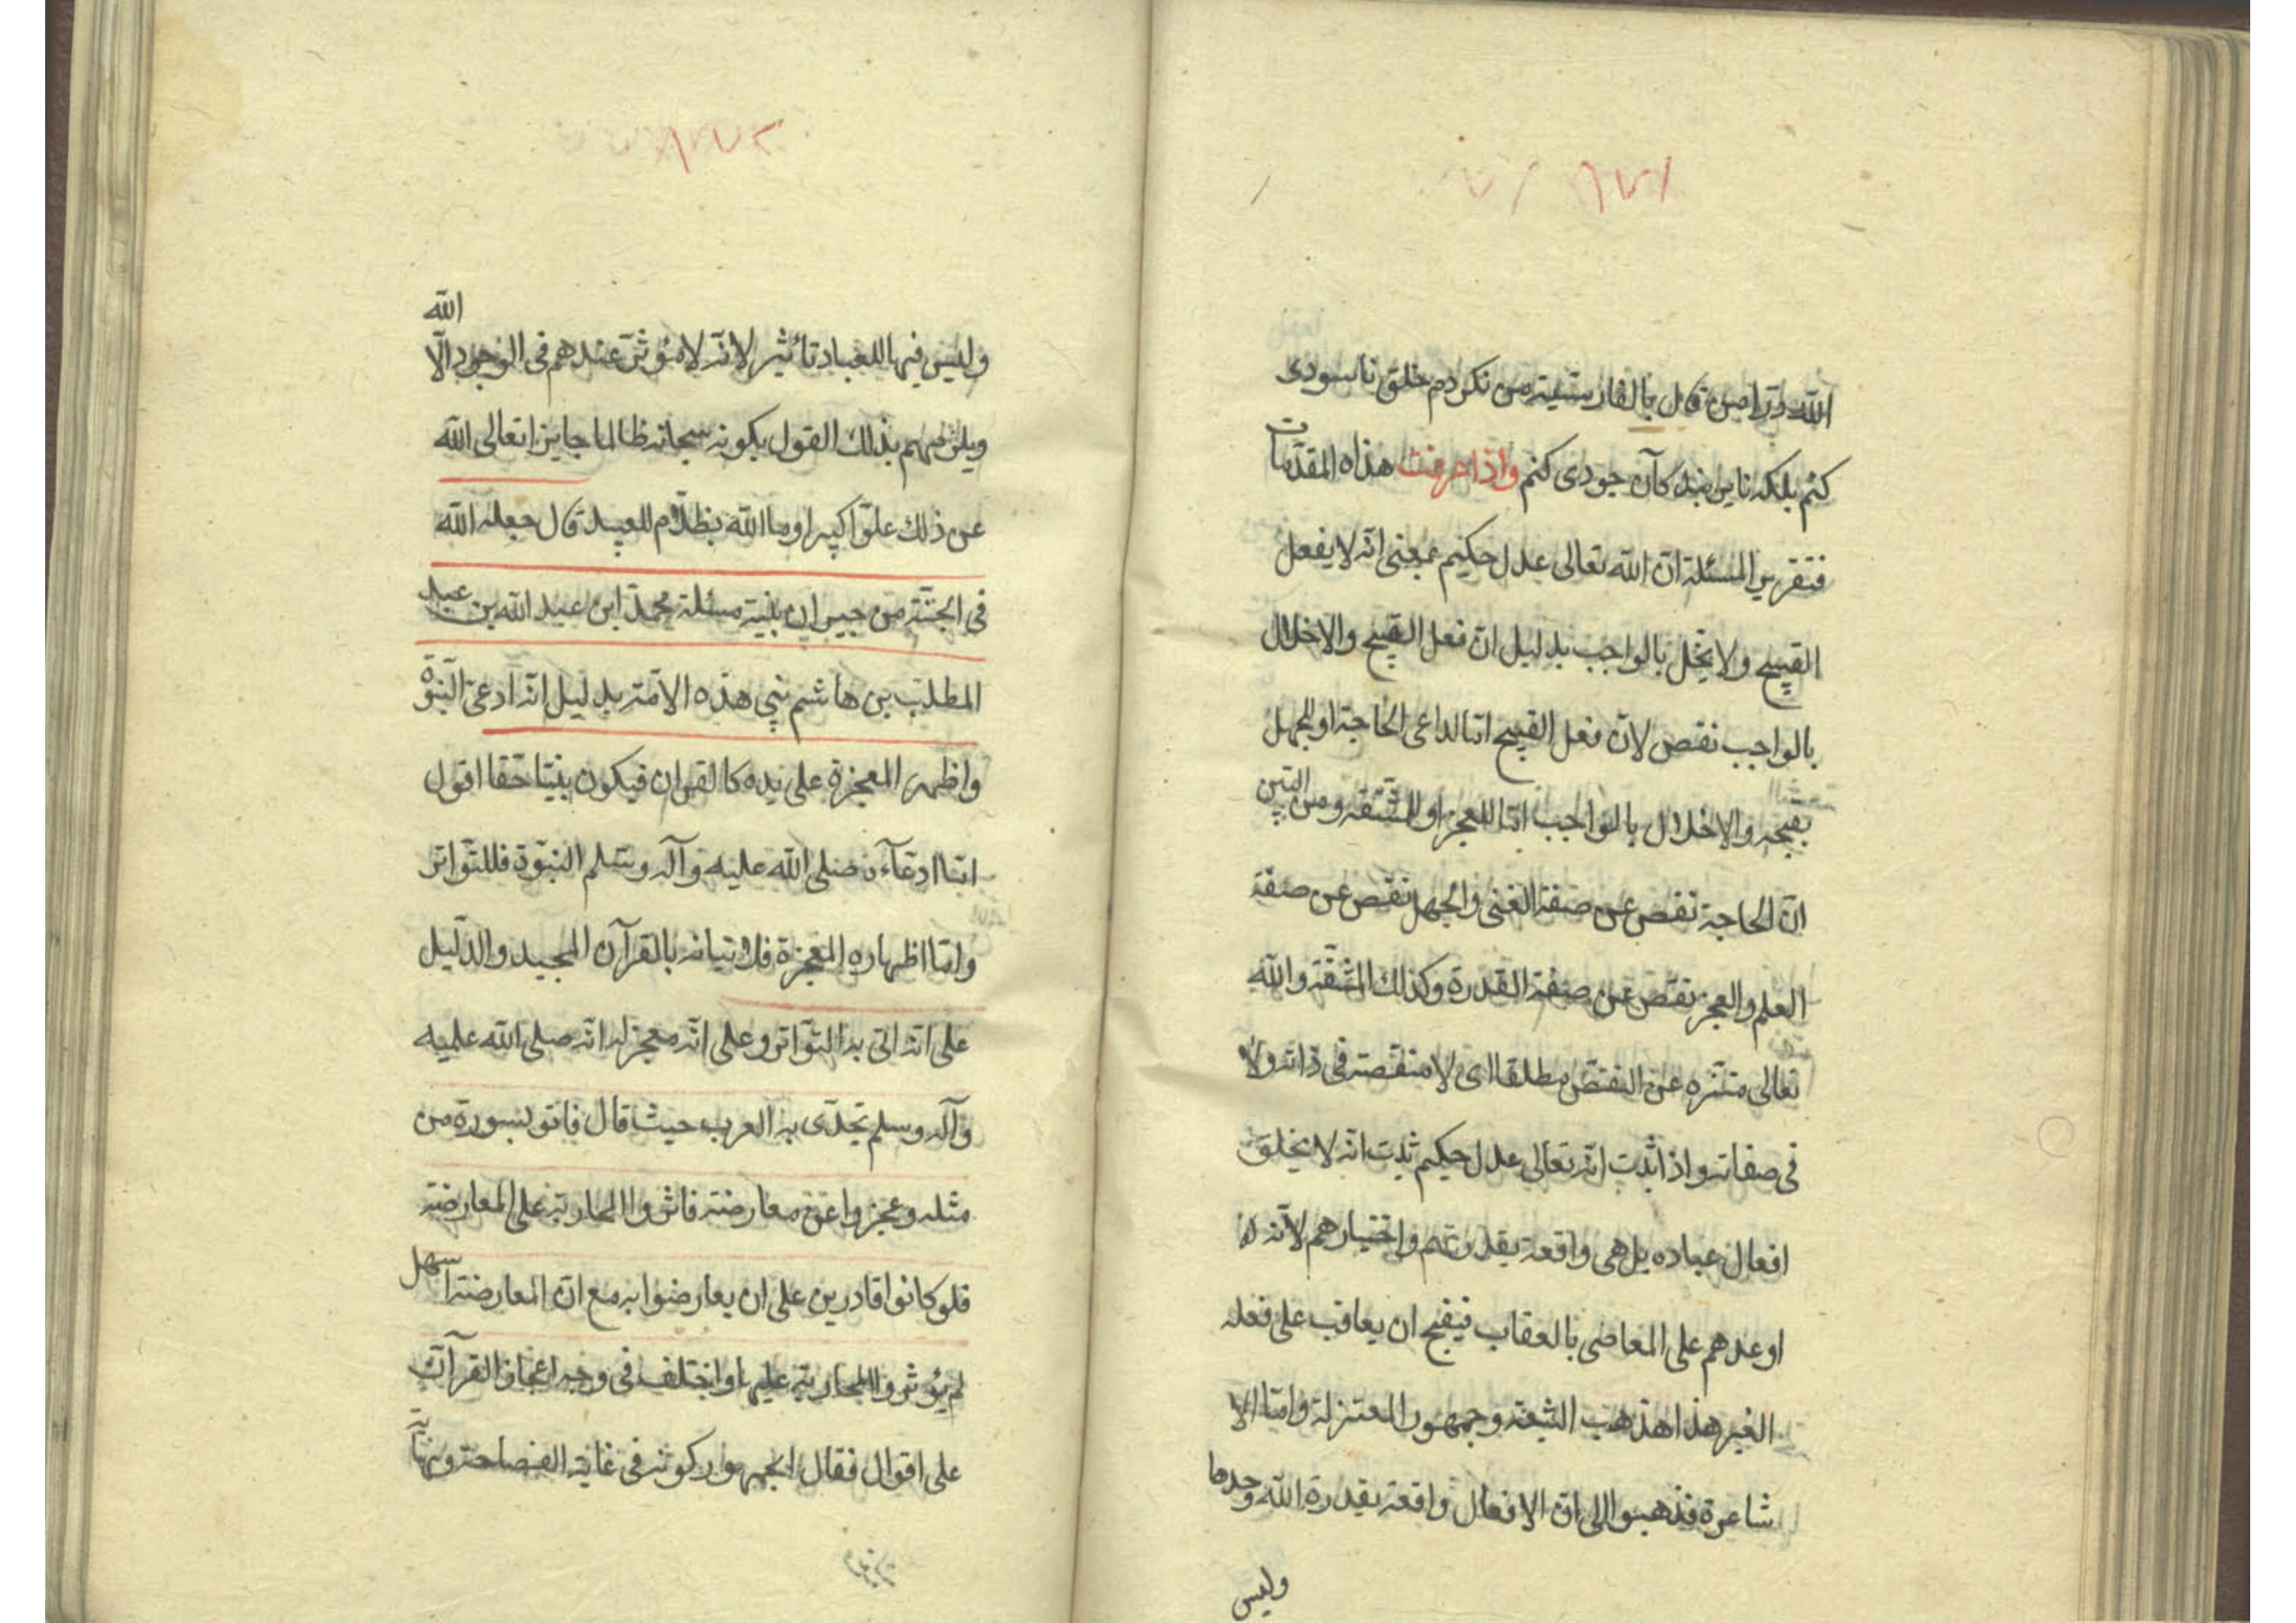 الله وتراصن قال بالفارسية من نكردم خلق تا سودى
كنم بلكه تا بر بندكان جودى كنم واذا عرفت هذه المقدمات
فتقرير المسئلة ان الله تعالى عدل حكيم بمعنى انه لا يفعل
القبيح ولا يخل بالواجب بدليل ان فعل القبيح والاخلال
بالواجب نقص لان فعل القبيح اما لداعى الحاجة او للجهل
بقبحه والاخلال بالواجب اما للعجز او للمشقة ومن البين
ان الحاجة نقص عن صفة الغنى والجهل نقص عن صفة
العلم والعجز نقص عن صفة القدرة وكذلك المشقة والله
تعالى متنزه عن النقص مطلقا اى لا منقصة فى ذاته ولا
فى صفاته واذا ثبت انه تعالى عدل حكيم ثبت انه لا يخلق
افعال عباده بل هى واقعة بقدرتهم واختيارهم لانه
اوعدهم على المعاصى بالعقاب فيقبح ان يعاقب على فعله
الغير هذا مذهب الشيعة وجمهور المعتزلة واما الا
شاعرة فذهبوا الى ان الافعال واقعة بقدرة الله وحدها
وليس
وليس فيها للعباد تأثير لانه لا مؤثر عندهم فى الوجود الا الله
ويلزمهم بذلك القول بكونه سبحانه ظالما جايرا تعالى الله
عن ذلك علوا كبيرا وما الله بظلام للعبيد قال جعله الله
فى الجنة من جيران نبيه مسئلة محمد ابن عبد الله بن عبد
المطلب بن هاشم نبى هذه الامة بدليل انه ادعى النبوة
واظهر المعجزة على يده كالقران فيكون نبيا حقا اقول
اما ادعآءه صلى الله عليه وآله وسلم النبوة فللتواتر
واما اظهاره المعجزة فلاتيانه بالقرآن المجيد والدليل
على انه اتى به التواتر وعلى انه معجز له انه صلى الله عليه
وآله وسلم تحدى به العرب حيث قال فاتو بسورة من
مثله وعجزوا عن معارضته فاثروا المحاربة على المعارضة
فلو كانوا قادرين على ان يعارضوا به مع ان المعارضة اسهل
لم يؤثروا المحاربة عليها واختلف فى وجه اعجاز القرآن
على اقوال فقال الجمهور كونه فى غاية الفصاحة ونهاية